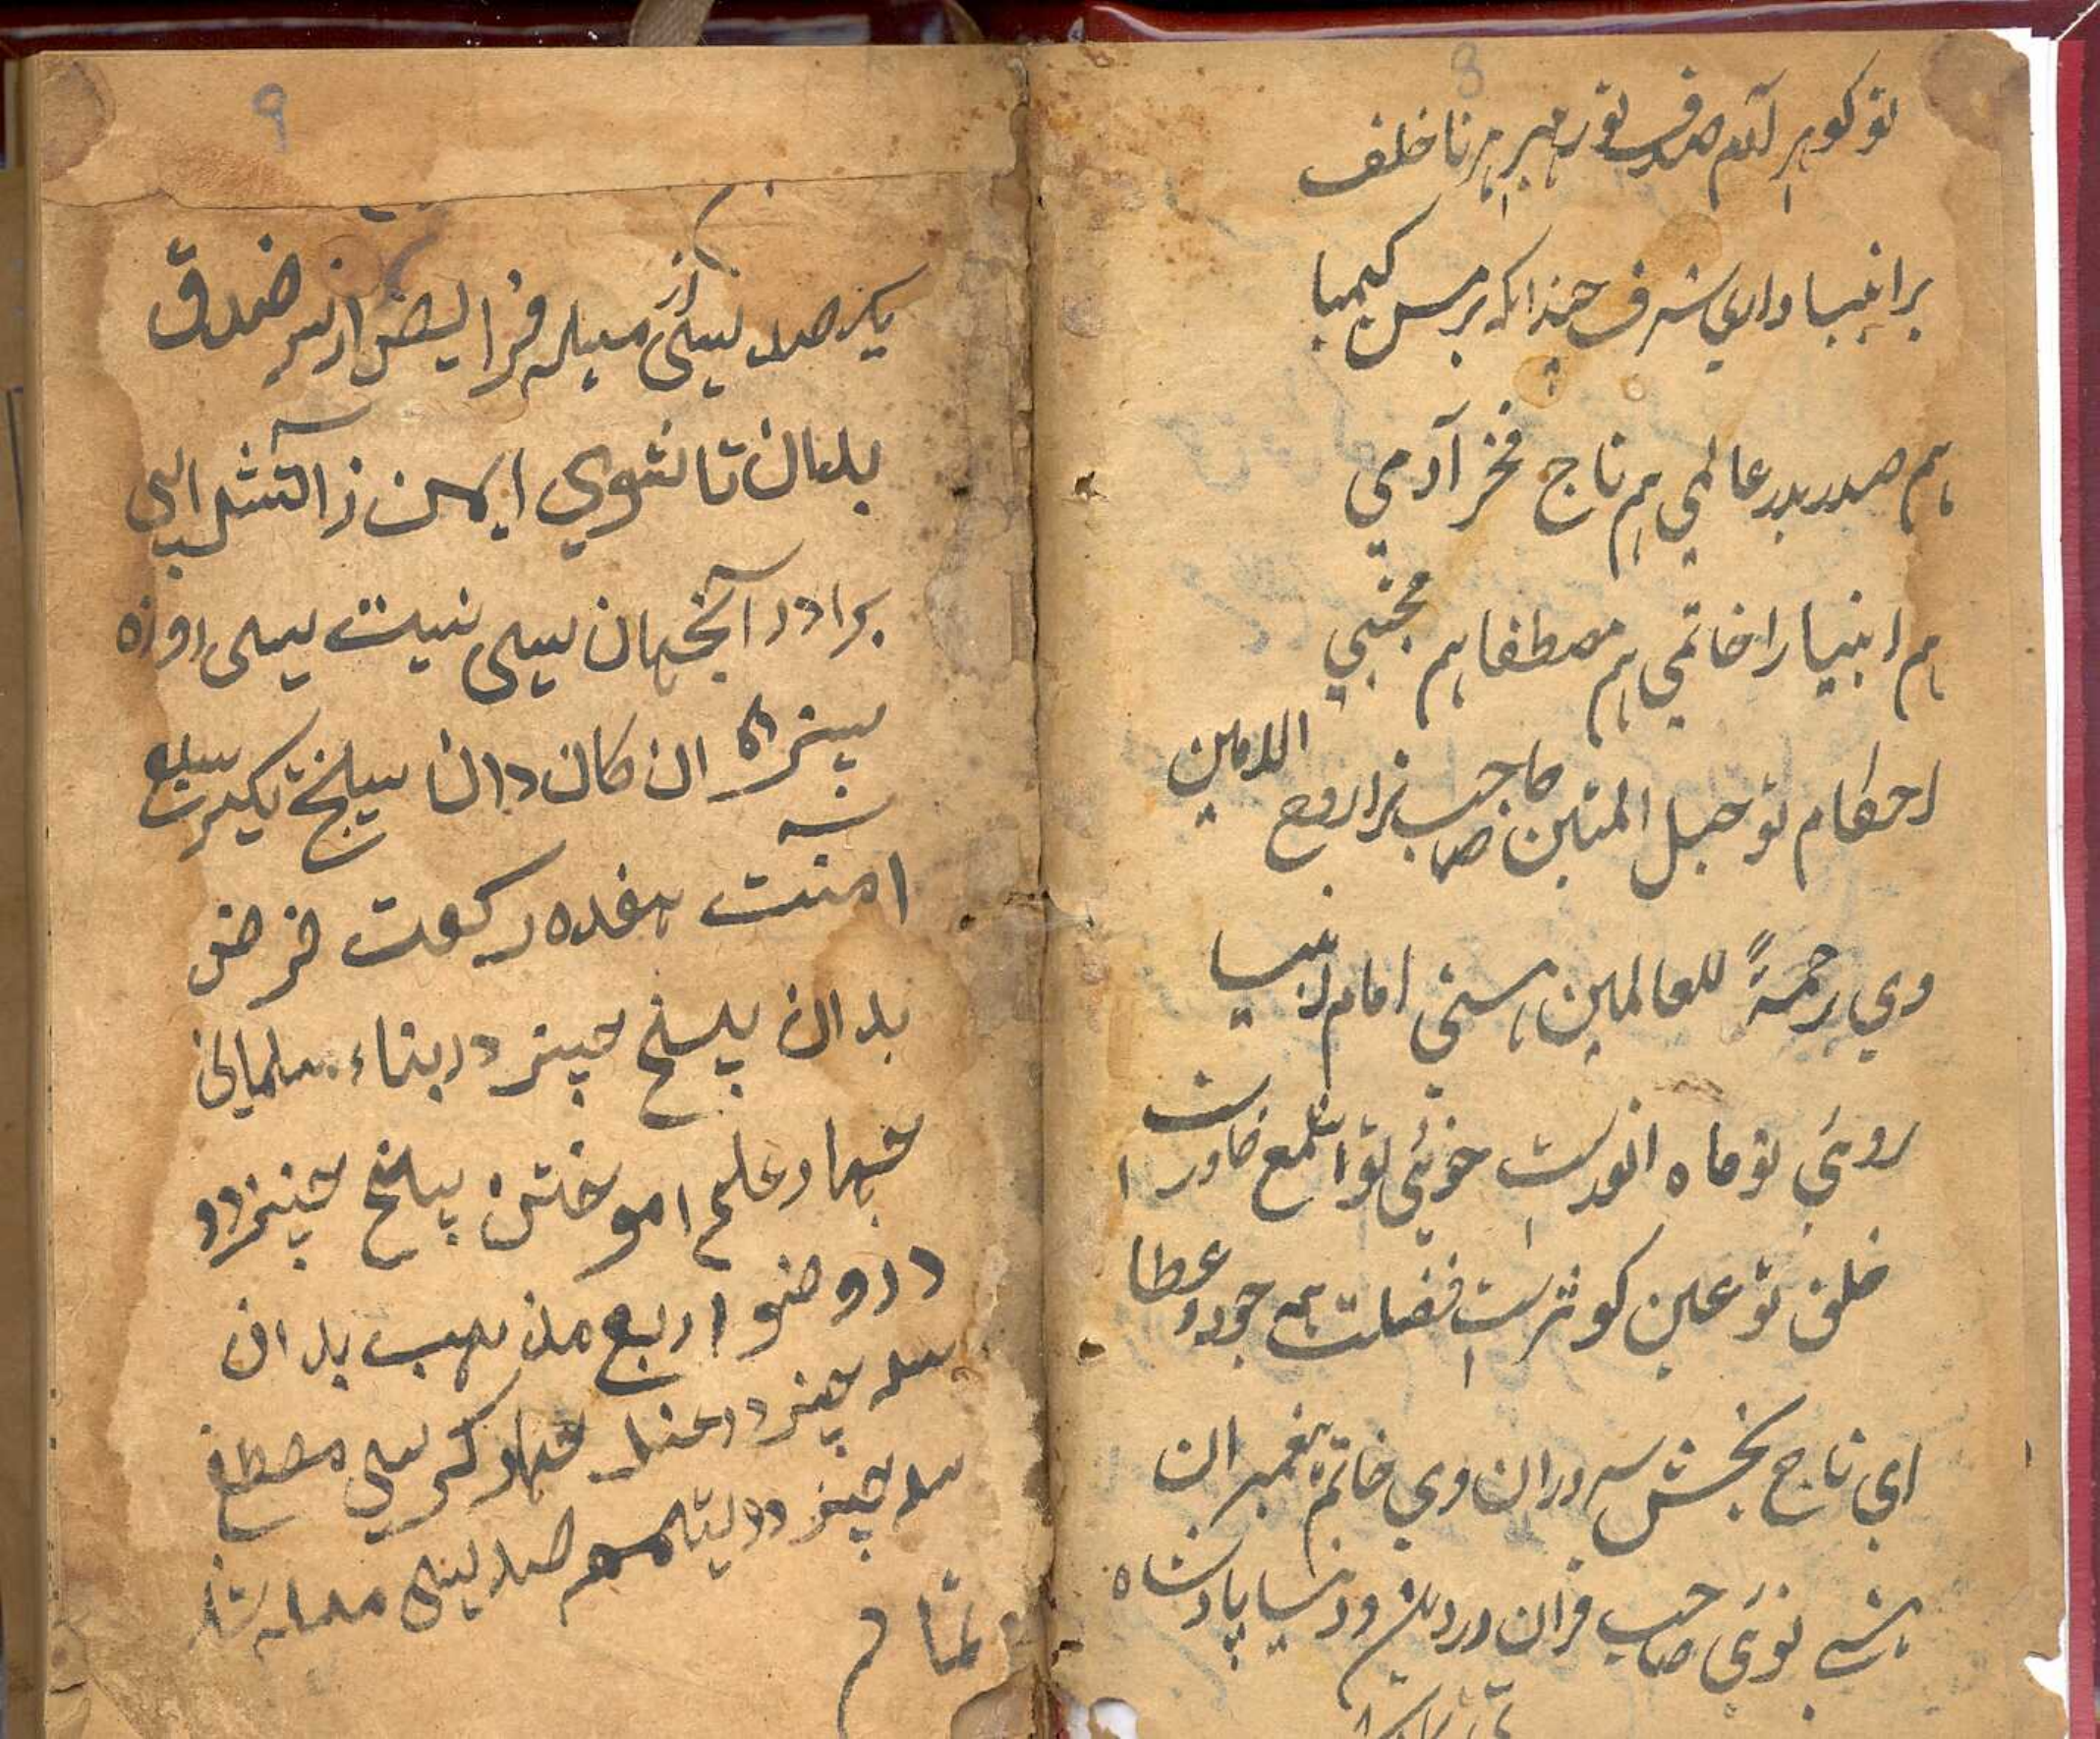 8
تو گوهر آدم صدف تو رهبر هر ناخلف
بر انبیا داری شرف چندانکه بر مس کیمیا
هم صدر بدر عالمی هم تاج فخر آدمی
هم انبیا را خاتمی هم مصطفا هم مجتبی
احکام تو حبل المتین صاحب ترا روح الامین
وی رحمةً للعالمین هستی امام انبیا
روئی تو ماه انورست خوئی تو خاور
خلق تو عین کوثرست فضلت همه جود و عطا
ای تاج بخش سروران وی خاتم پیغمبران
توئی صاحب قران در دین و دنیا پادشاه
9
یکصد سی مسله فرایض از سر صدق
بدان تا شوی ایمن ز آتش
برادر آنجهان سی نیت سی روزه
سیزده ارکان دان پنج تکبیر
امنت هفده رکعت فرض
بدان پنج چیز در بناء مسلمانی
چهار علم اموختن پنج چیز در
در وضو اربع مذهب بدان
سه چیز در غسل چهار کرسی مصطفی
سه چیز در تیمم صد سی مسله شد
تمام